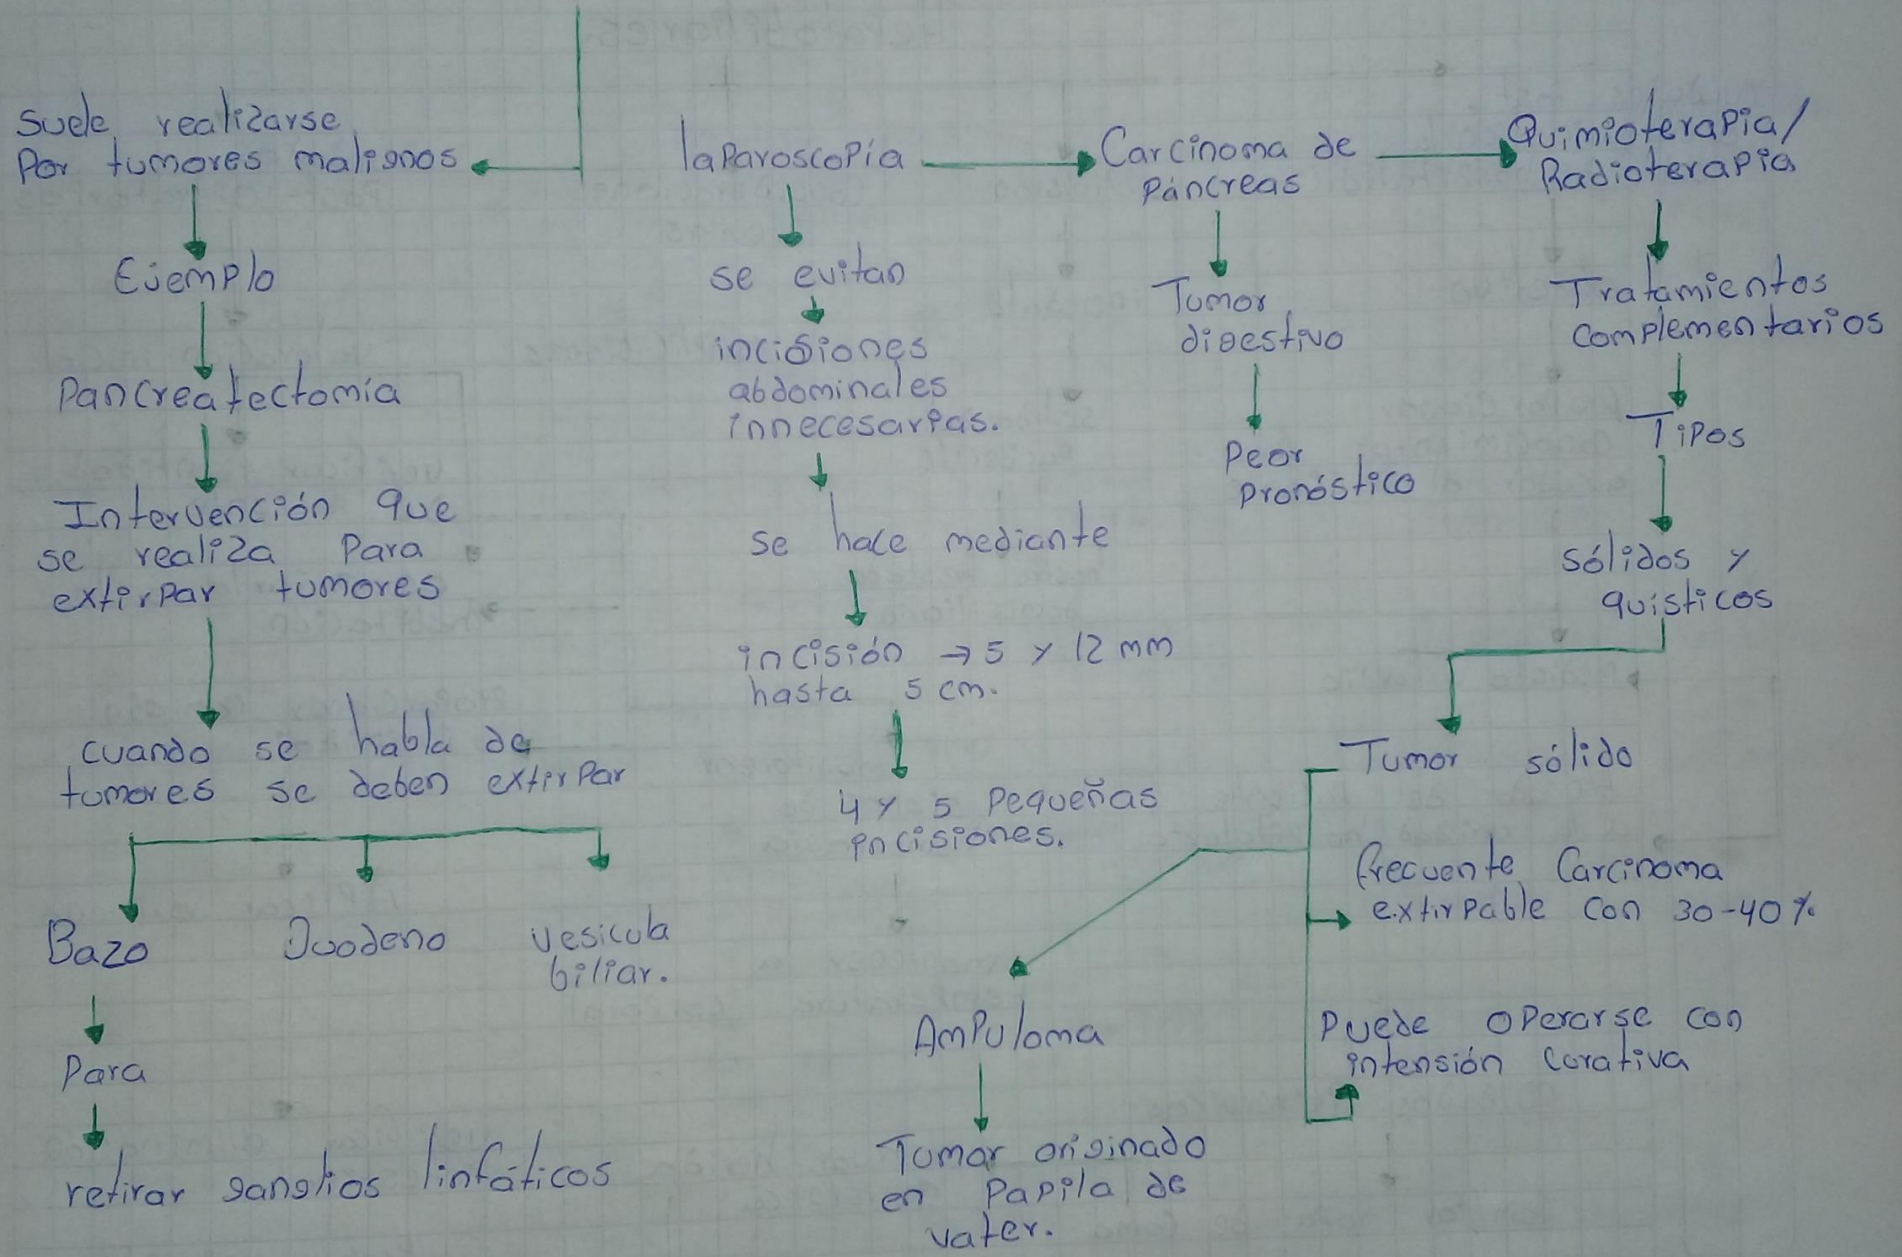 Suele realizarse
Por tumores malignos
Ejemplo
Pancreatectomía
Intervención que
se realiza Para
extirpar tumores
cuando se habla de
tumores se deben extirpar
Bazo
Duodeno
vesicula
biliar.
Para
retirar ganglios linfáticos
laparoscopía
se evitan
incisiones
abdominales
innecesarias.
se hace mediante
incisión → 5 y 12 mm
hasta 5 cm.
4 y 5 Pequeñas
incisiones.
Carcinoma de
Páncreas
Tumor
digestivo
Peor
Pronóstico
Quimioterapia/
Radioterapia
Tratamientos
complementarios
Tipos
sólidos y
quísticos
Tumor sólido
frecuente Carcinoma
extirpable con 30-40%
Puede operarse con
intensión curativa
Ampuloma
Tumor originado
en Papila de
vater.